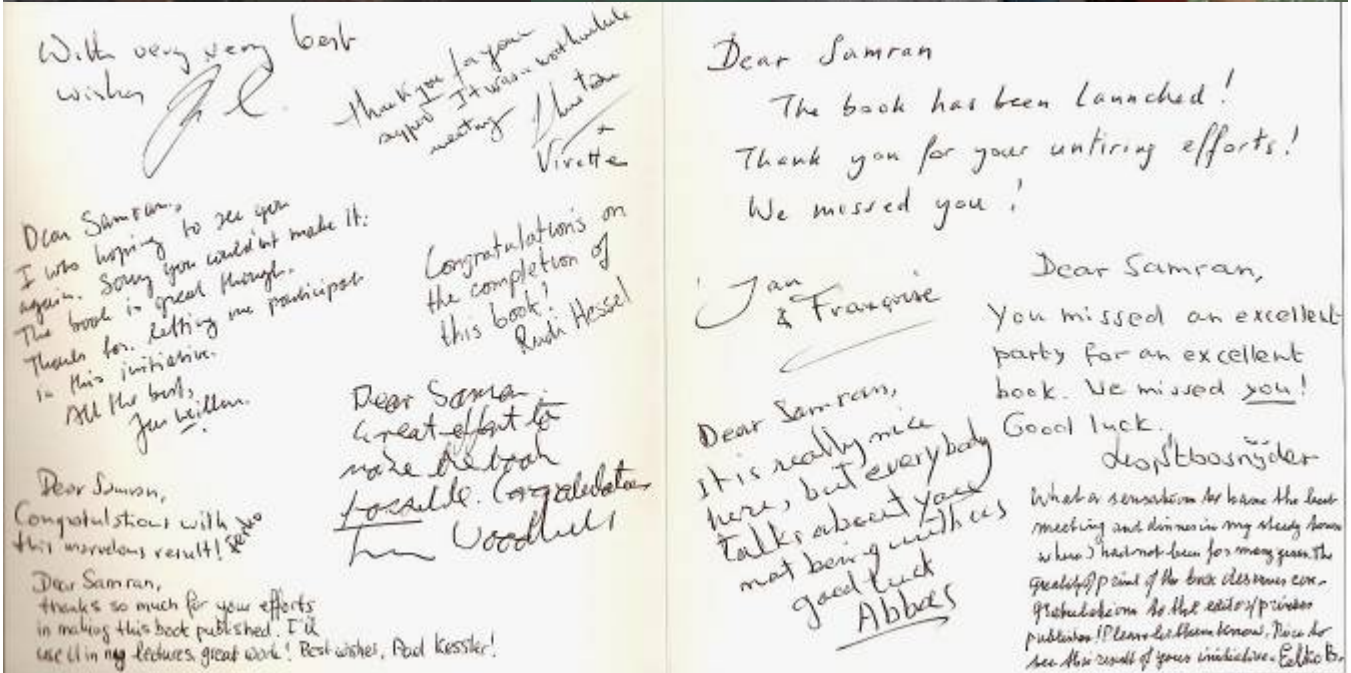 With very very best
wishes
Thank you for your
support It was a worthwhile
meeting
Virette
Dear Samran,
I was hoping to see you
again. Sorry you couldn't make it.
The book is great though.
Thanks for letting me participate
in this initiative.
All the best,
Jan Willem.
Congratulations on
the completion of
this book!
Rudi Hessel
Dear Samran
Great effort to
make the book
possible. Congratulations
Woodhill
Dear Samran,
Congratulstions with
this marvelous result!
Dear Samran,
thanks so much for your efforts
in making this book published. I'll
use it in my lectures, great work! Best wishes, Paul Kessler!
Dear Samran
The book has been launched!
Thank you for your untiring efforts!
We missed you!
Jan
& Françoise
Dear Samran,
You missed an excellent
party for an excellent
book. We missed you!
Good luck.
Dear Samran,
it is really nice
here, but everybody
talks about you
not being with us
good luck
Abbas
What a sensation to have the last
meeting and dinner in my study town
where I had not been for many years. The
great of print of the book deserves con-
gratulations to the editors/printers
publisher! Please let them know. Nice to
see this result of your initiative. Eelko B.